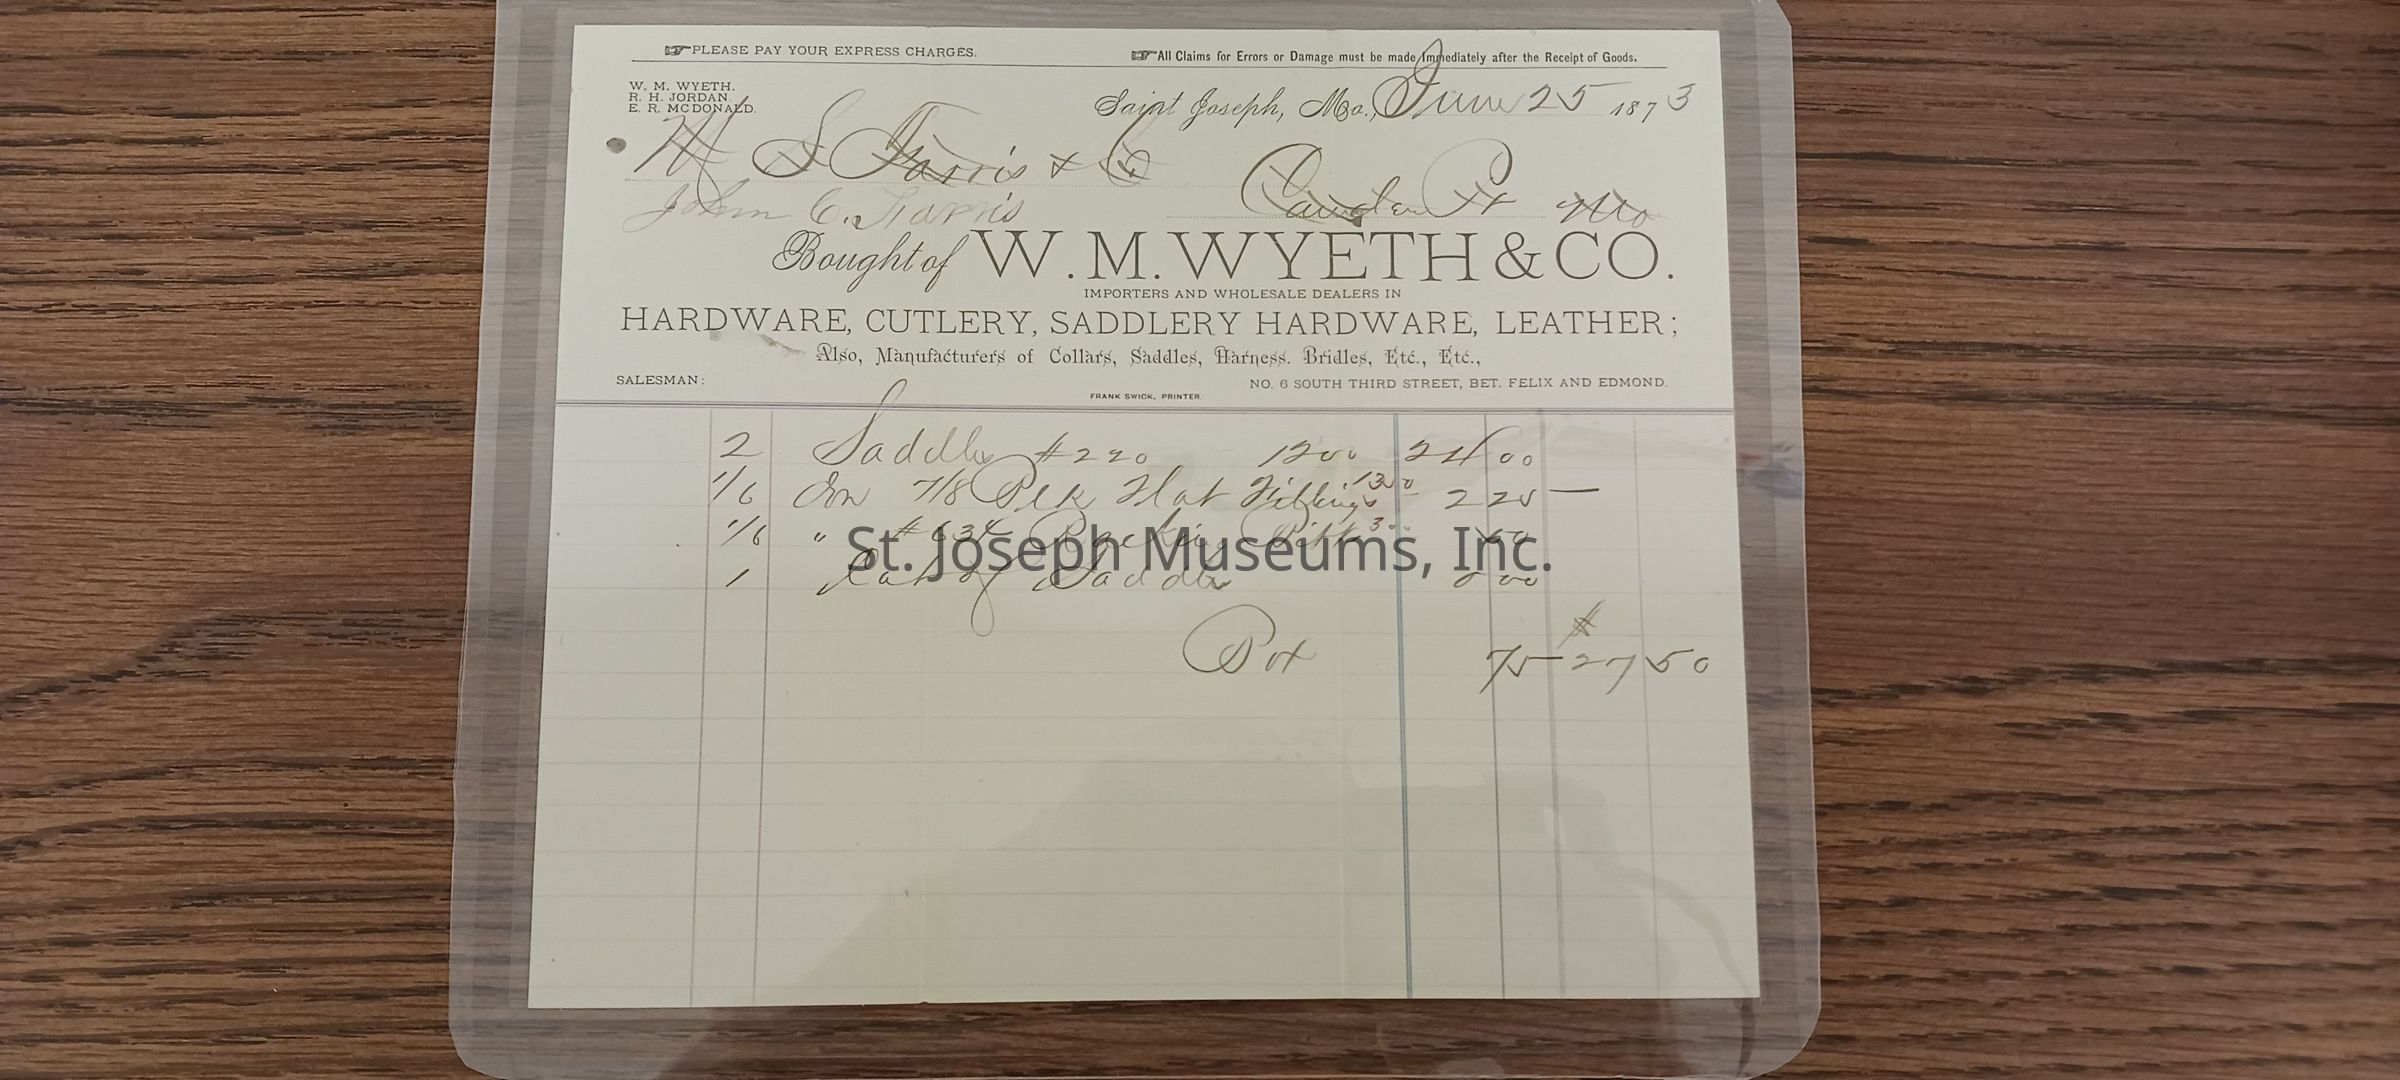 PLEASE PAY YOUR EXPRESS CHARGES.
All Claims for Errors or Damage must be made Immediately after the Receipt of Goods.
W. M. WYETH.
R. H. JORDAN.
E. R. MCDONALD.
Saint Joseph, Mo., June 25 1873
M S Farris & Co
John C. Farris
Camden Pt Mo
Bought of W. M. WYETH & CO.
IMPORTERS AND WHOLESALE DEALERS IN
HARDWARE, CUTLERY, SADDLERY HARDWARE, LEATHER;
Also, Manufacturers of Collars, Saddles, Harness. Bridles, Etc., Etc.,
SALESMAN:
NO. 6 SOUTH THIRD STREET, BET. FELIX AND EDMOND.
FRANK SWICK, PRINTER.
2 Saddles #220 1200 24 00
1/6 Dn 7/8 Blk Flat 1350 2 25
1/6 " #634 3 00 50
1 Saddle 00
Box 75 $ 27 50
St. Joseph Museums, Inc.